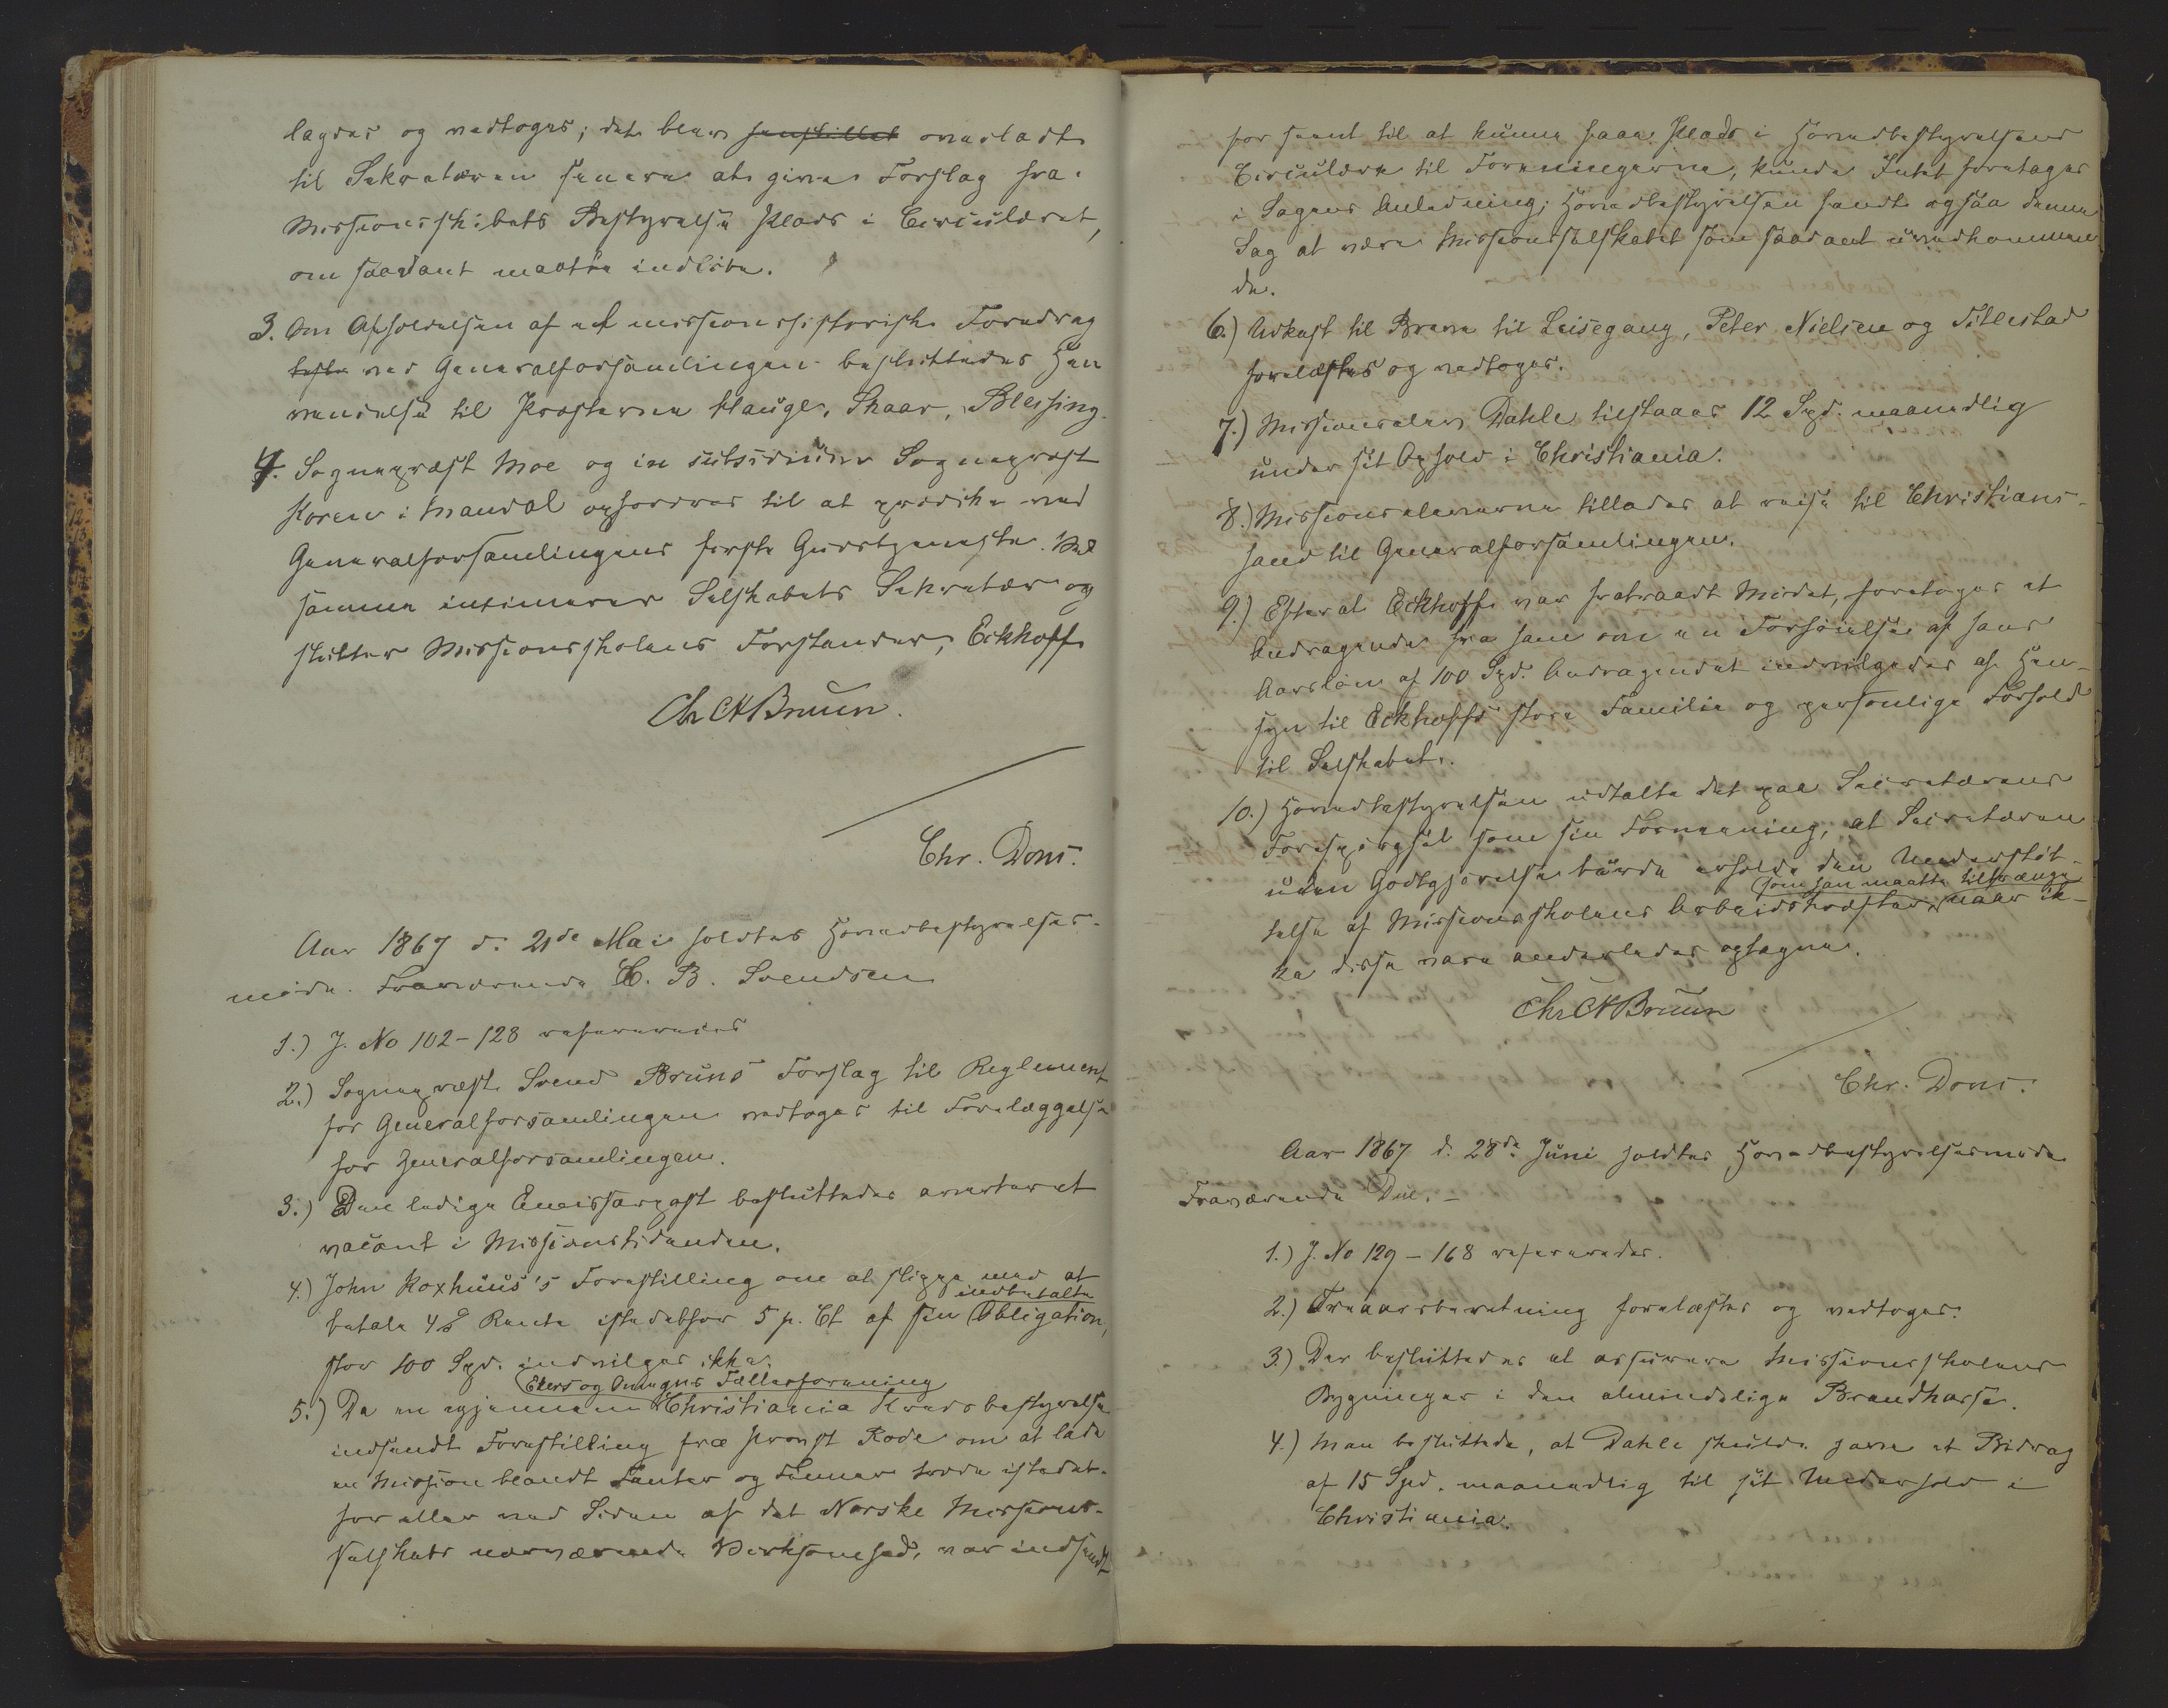 lagdes og vedtoges; det blev henstillet overladt
til Sekretæren senere at give Forslag fra
Missionsskibets Bestyrelse Plads i Circulæret,
om saadant maatte indløbe.
3. Om Afholdelsen af et missionshistorisk Foredrag
ved Generalforsamlingen besluttedes Hen
vendelse til Præsterne Hauge, Skaar, Blessing.
4. Sognepræst Moe og in subsidium Sognepræst
Koren i Mandal opfordres til at prædike ved
Generalforsamlingens første Gudstjeneste. Ved
samme intimerer Selskabets Sekretær og
slutter Missionsskolens Forstander, Eckhoff
Chr A Bruun.
Chr. Dons.
Aar 1867 d. 21de Mai holdtes Hovedbestyrelses-
møde. Fraværende C. B. Svendsen
1.) J. No 102-128 refereredes
2.) Sognepræst Svend Bruns Forslag til Reglement
for Generalforsamlingen vedtoges til Forelæggelse
for Generalforsamlingen.
3.) Den ledige Emissærpost besluttedes averteret
vacant i Missionstidenden.
4.) John Koxhuus's Forestilling om at slippe med at
betale 4 % Rente istedetfor 5 p. Ct af sin indbetalte Obligation,
stor 100 Spd. indvilges ikke.
5.) Da en igjennem Ekers og Omegns Fællesforening Christiania Kredsbestyrelse
indsendt Forestilling fra Provst Rode om at lade
en Mission blandt Fanter og Finner træde istedet-
for eller ved Siden af det Norske Missions-
selskabs nuværende Virksomhed, var indsendt
for seent til at kunne faae Plads i Hovedbestyrelsens
Circulære til Foreningerne, kunde Intet foretages
i Sagens Anledning; Hovedbestyrelsen fandt ogsaa denne
Sag at være Missionsselskabet som saadant uvedkommen
de.
6.) Udkast til Breve til Leisegang, Peter Nielsen og Titlestad
forelæstes og vedtoges.
7.) Missionselev Dahle tilstaaes 12 Spd. maanedlig
under sit Ophold i Christiania.
8.) Missionseleverne tillades at reise til Christians-
sand til Generalforsamlingen.
9.) Efterat Eckhoff var fratraadt Mødet, foretoges et
Andragende fra ham om en Forhøielse af hans
Aarsløn af 100 Spd. Andragendet indvilgedes af Hen-
syn til Eckhoffs store Familie og personlige Forhold
til Selskabet.
10.) Hovedbestyrelsen udtalte det paa Secretærens
Forespørgsel som sin Formening, at Secretæren
uden Godtgjørelse burde erholde den Understøt-
telse af Missionsskolens Arbeidskræfter, som han maatte tiltrænge naar ik-
ke disse vare anderledes optagne.
Chr A Bruun
Chr. Dons.
Aar 1867 d. 28de Juni holdtes Hovedbestyrelsesmøde
Fraværende Due. -
1.) J. No 129 - 168 refereredes.
2.) Treaarsberetning forelæstes og vedtoges.
3.) Der besluttedes at assurere Missionsskolens
Bygninger i den almindelige Brandkasse.
4.) Man besluttede, at Dahle skulde have et Bidrag
af 15 Spd. maanedlig til sit Underhold i
Christiania.